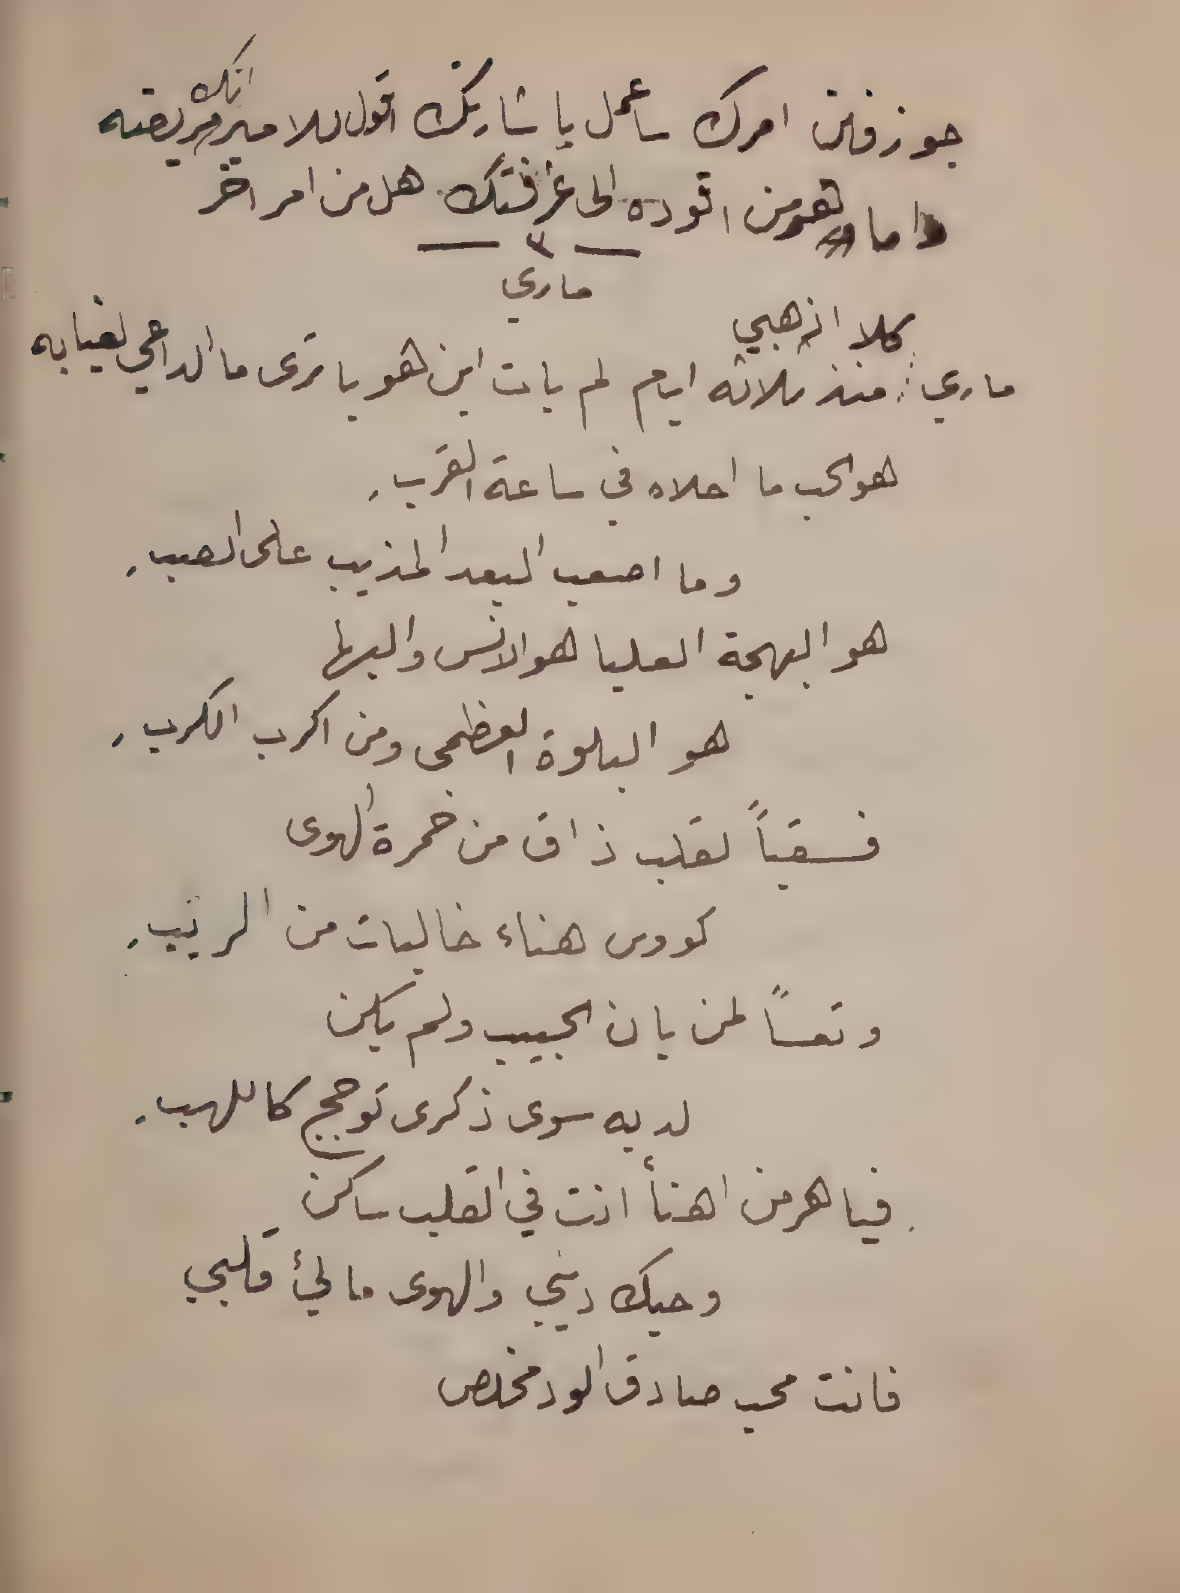 جوزفين امرك ساعمل باشارتك اقول للامير انك مريضه
اما هرمن اقوده الى غرفتك هل من امر اخر
— ٣ —
ماري
كلا اذهبي
ماري : منذ ثلاثه ايام لم يات اين هو يا ترى ما الداعي لغيابه
هو الحب ما احلاه في ساعة القرب
وما اصعب البعد المذيب على الصب
هو البهجة العليا هو الانس والبها
هو البلوة العظمى ومن اكرب الكرب
فسقياً لقلب ذاق من خمرة الهوى
كووس هناء خاليات من الريب
وتعساً لمن بان الحبيب ولم يكن
لديه سوى ذكرى توجج كاللهب
فيا هرمن اهنأ انت في القلب ساكن
وحبك ديني والهوى مالئ قلبي
فانت محب صادق الود مخلص